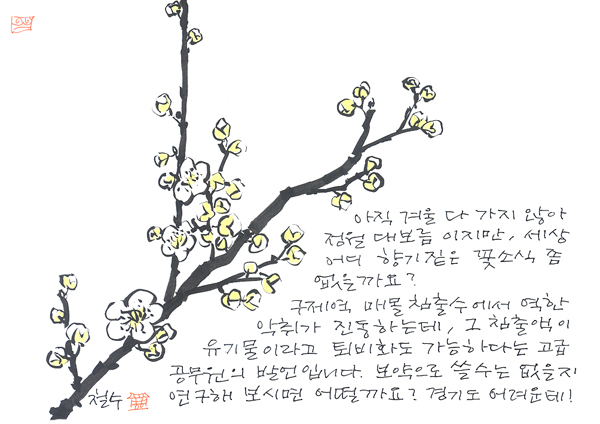 아직 겨울 다 가지 않아
정월 대보름 이지만, 세상
어디 향기 짙은 꽃소식 쯤
없을까요?
구제역 매몰 침출수에서 역한
악취가 진동하는데, 그 침출액이
유기물이라고 퇴비화도 가능하다는 고급
공무원의 발언입니다. 보약으로 쓸수는 없을지
연구해 보시면 어떨까요? 경기도 어려운데!
철수